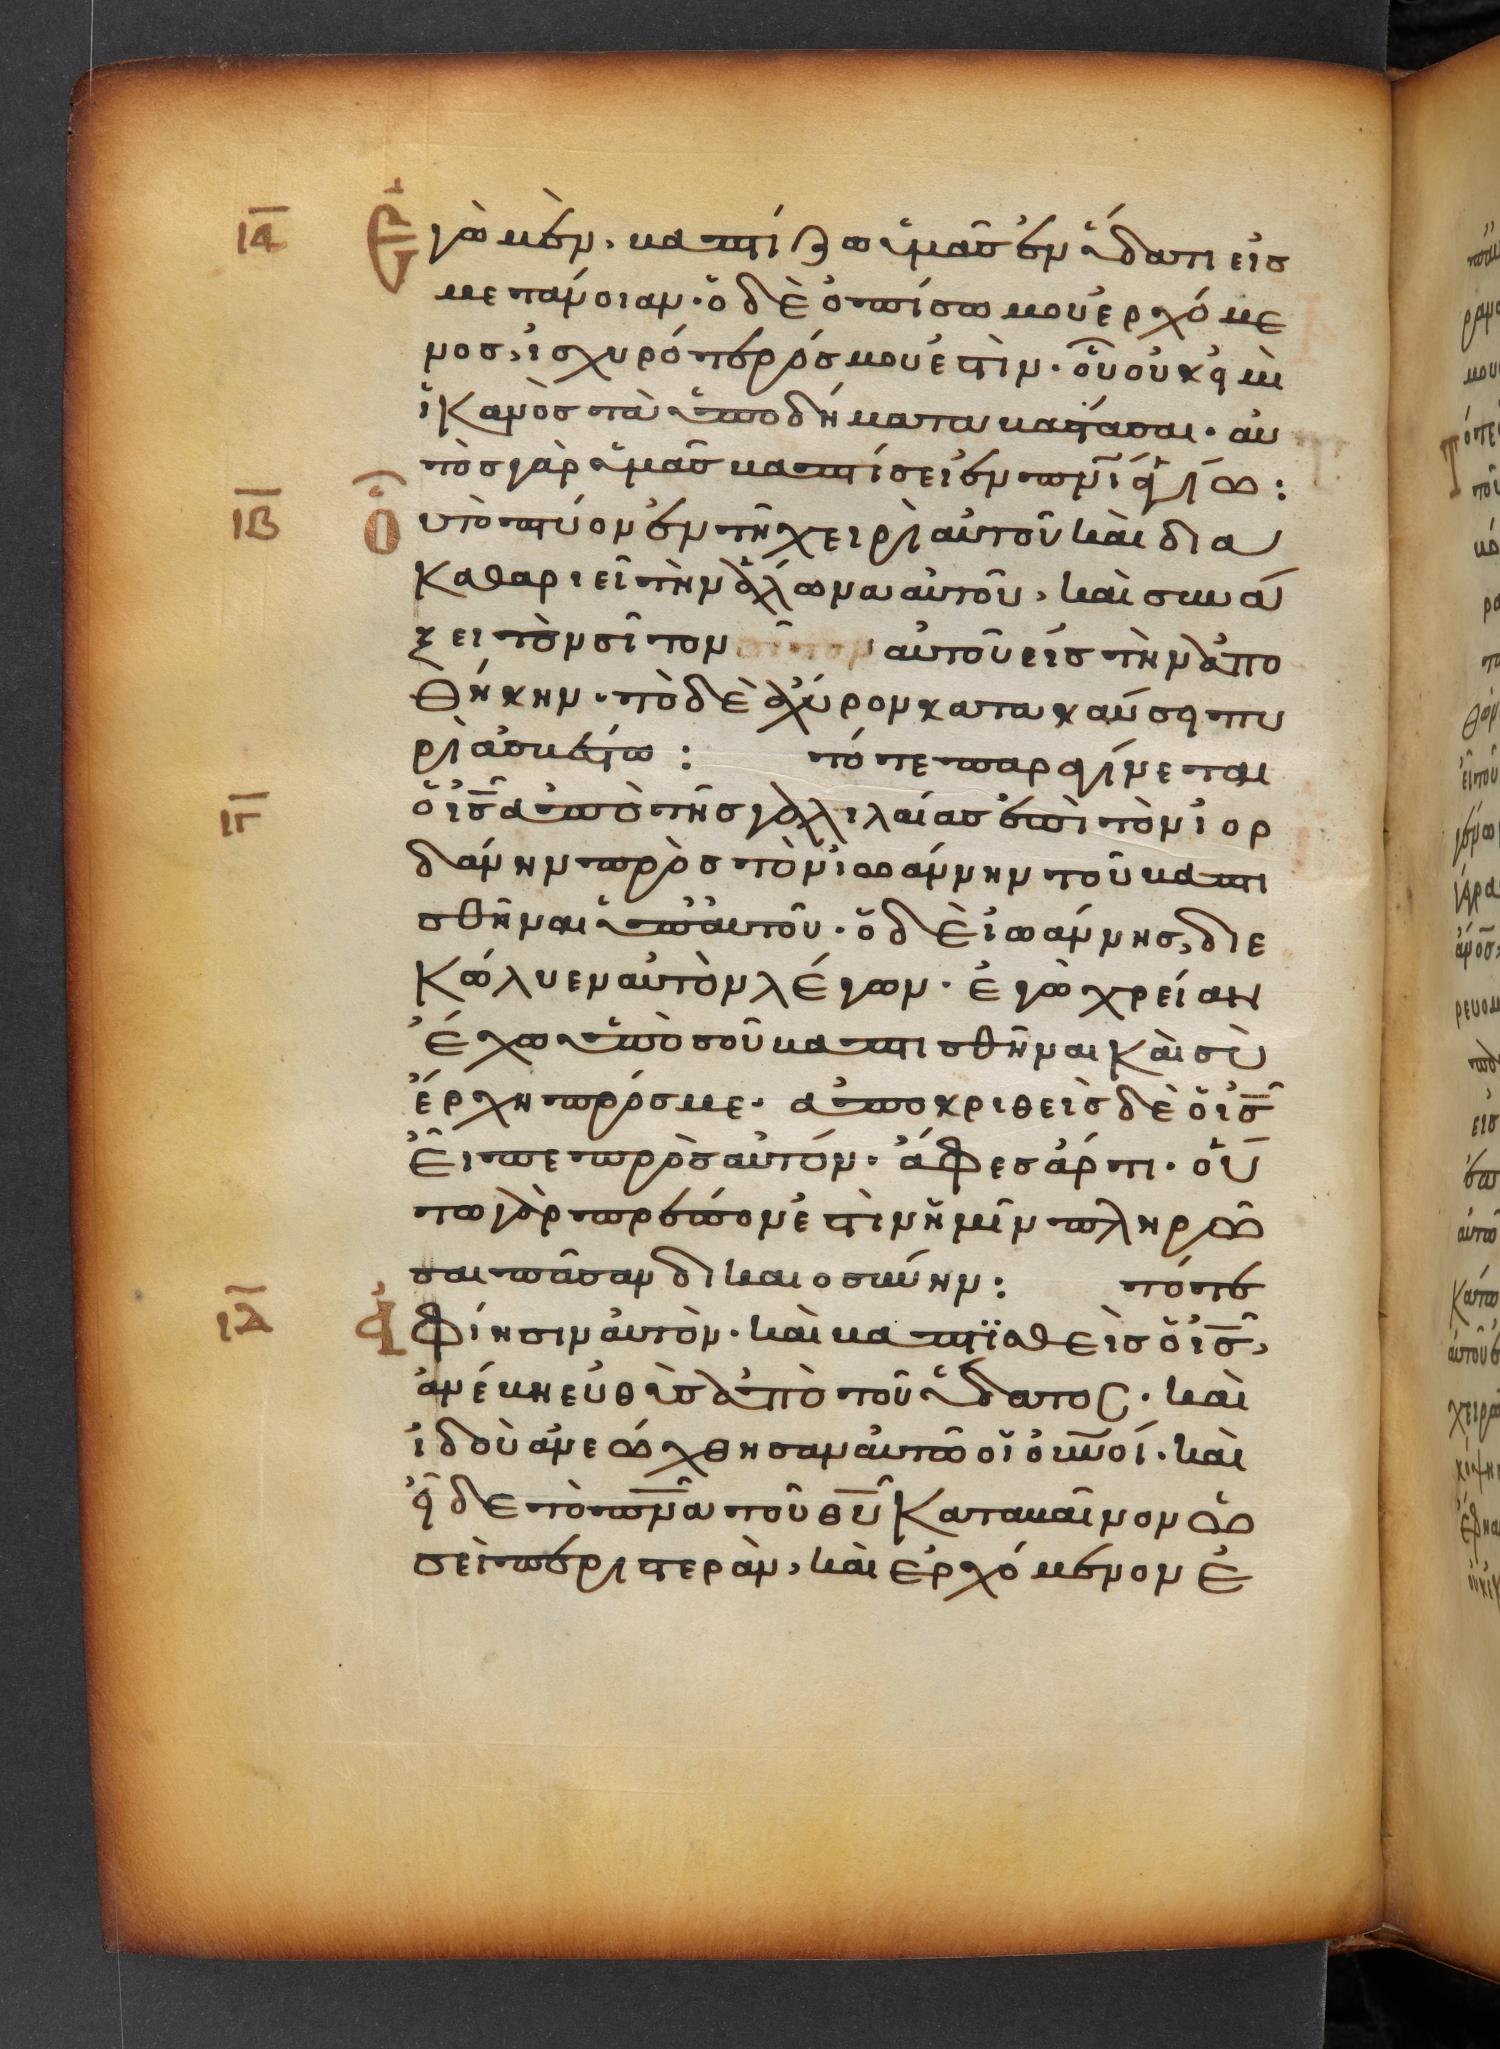 ΙΑ Ἐγὼ μὲν, βαπτίζω ὑμᾶς ἐν ὕδατι εἰς
μετάνοιαν· ὁ δὲ ὀπίσω μου ἐρχόμε
νος, ἰσχυρότερός μου ἐστὶν· οὗ οὐκ εἰμὶ
ἱκανὸς τὰ ὑποδήματα βαστάσαι· αὐ
τὸς γὰρ ὑμᾶς βαπτίσει ἐν πν̅ι ἁγίω:
ΙΒ Οὗ τὸ πτύον ἐν τῆ χειρὶ αὐτοῦ καὶ δια
καθαριεῖ τὴν ἅλωνα αὐτοῦ, καὶ συνά
ξει τὸν σῖτον σῖτον αὐτοῦ εἰς τὴν ἀπο
θήκην· τὸ δὲ ἄχυρον κατακαύσει πυ
ρὶ ἀσβέστω: τότε παραγίνεται
ΙΓ ὁ ις̅ ἀπὸ τῆς γαλιλαίας ἐπὶ τὸν ἰορ
δάνην πρὸς τὸν ἰωάννην τοῦ βαπτι
σθῆναι ὑπ' αὐτοῦ· ὁ δὲ ἰωάννης, διε
κώλυεν αὐτὸν λέγων· ἐγὼ χρείαν
ἔχω ὑπὸ σοῦ βαπτισθῆναι καὶ σὺ
ἔρχη πρός με· ἀποκριθεὶς δὲ ὁ ις̅
εἶπε πρὸς αὐτόν· ἄφες ἄρτι· οὕ
τω γὰρ πρέπον ἐστὶν ἡμῖν πληρῶ
σαι πᾶσαν δικαιοσύνην: τότε
ΙΔ ἀφίησιν αὐτὸν· καὶ βαπτϊσθεὶς ὁ ις̅,
ἀνέβη εὐθὺς ἀπὸ τοῦ ὕδατος· καὶ
ἰδοὺ ἀνεώχθησαν αὐτῶ οἱ οὐν̅οί· καὶ
εἶδε τὸ πν̅α τοῦ θυ̅ καταβαῖνον ὡ
σεὶ περιστερὰν, καὶ ἐρχόμενον ἐ